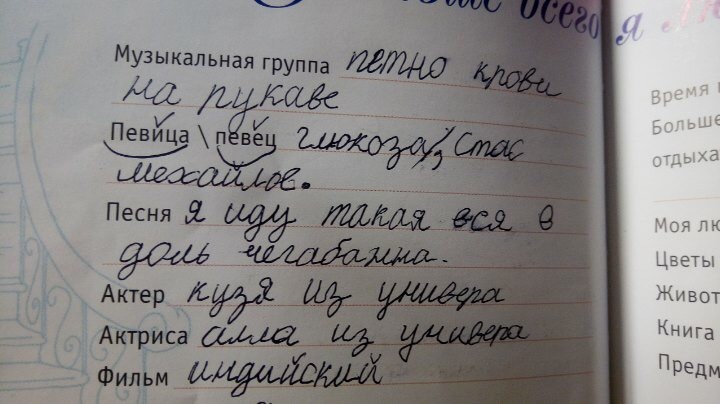 всего я
Музыкальная группа петно крови
на рукаве
Певица \ певец глюкоза, Стас
михайлов.
Песня я иду такая вся в
доль чегабанна.
Актер кузя из универа
Актриса алла из универа
Фильм индийский
Время
Больше
отдыха
Моя лю
Цветы
Живот
Книга
Предм